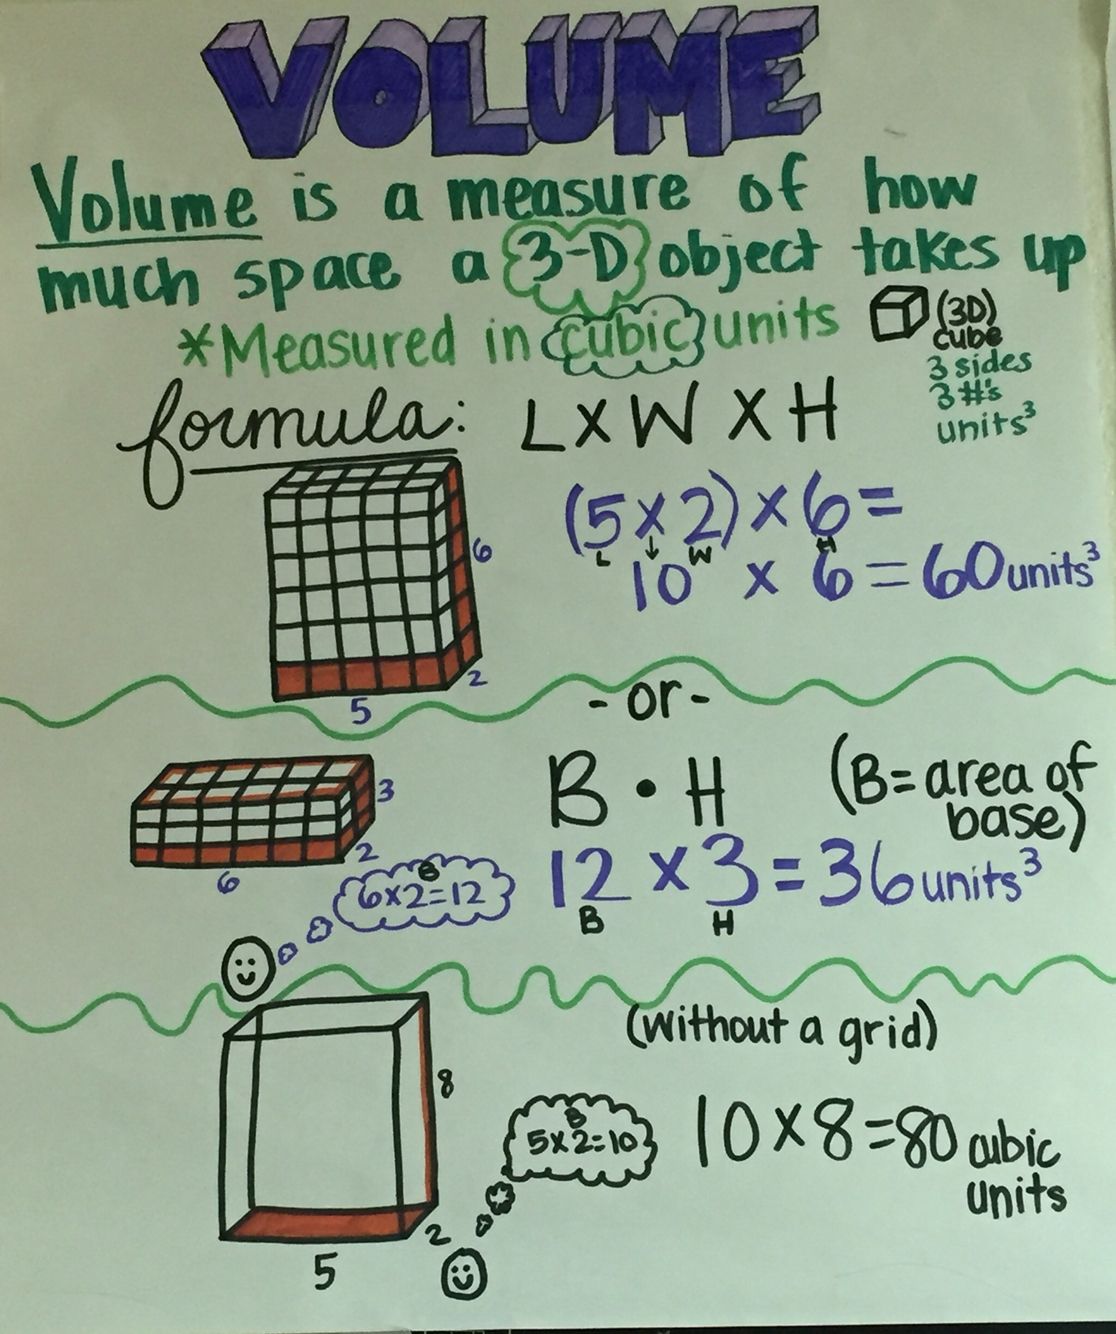 VOLUME
Volume is a measure of how
much space a 3-D object takes up
*Measured in cubic units
(3D)
cube
3 sides
3 #'s
units³
formula: L X W X H
(5 x 2) x 6 =
L ↓ W H
10 x 6 = 60 units³
6
2
5
-or-
B • H (B= area of
base)
3
2
6
B
6x2=12
12 x 3 = 36 units³
B H
(without a grid)
8
B
5x2=10
10 x 8 = 80 cubic
units
2
5